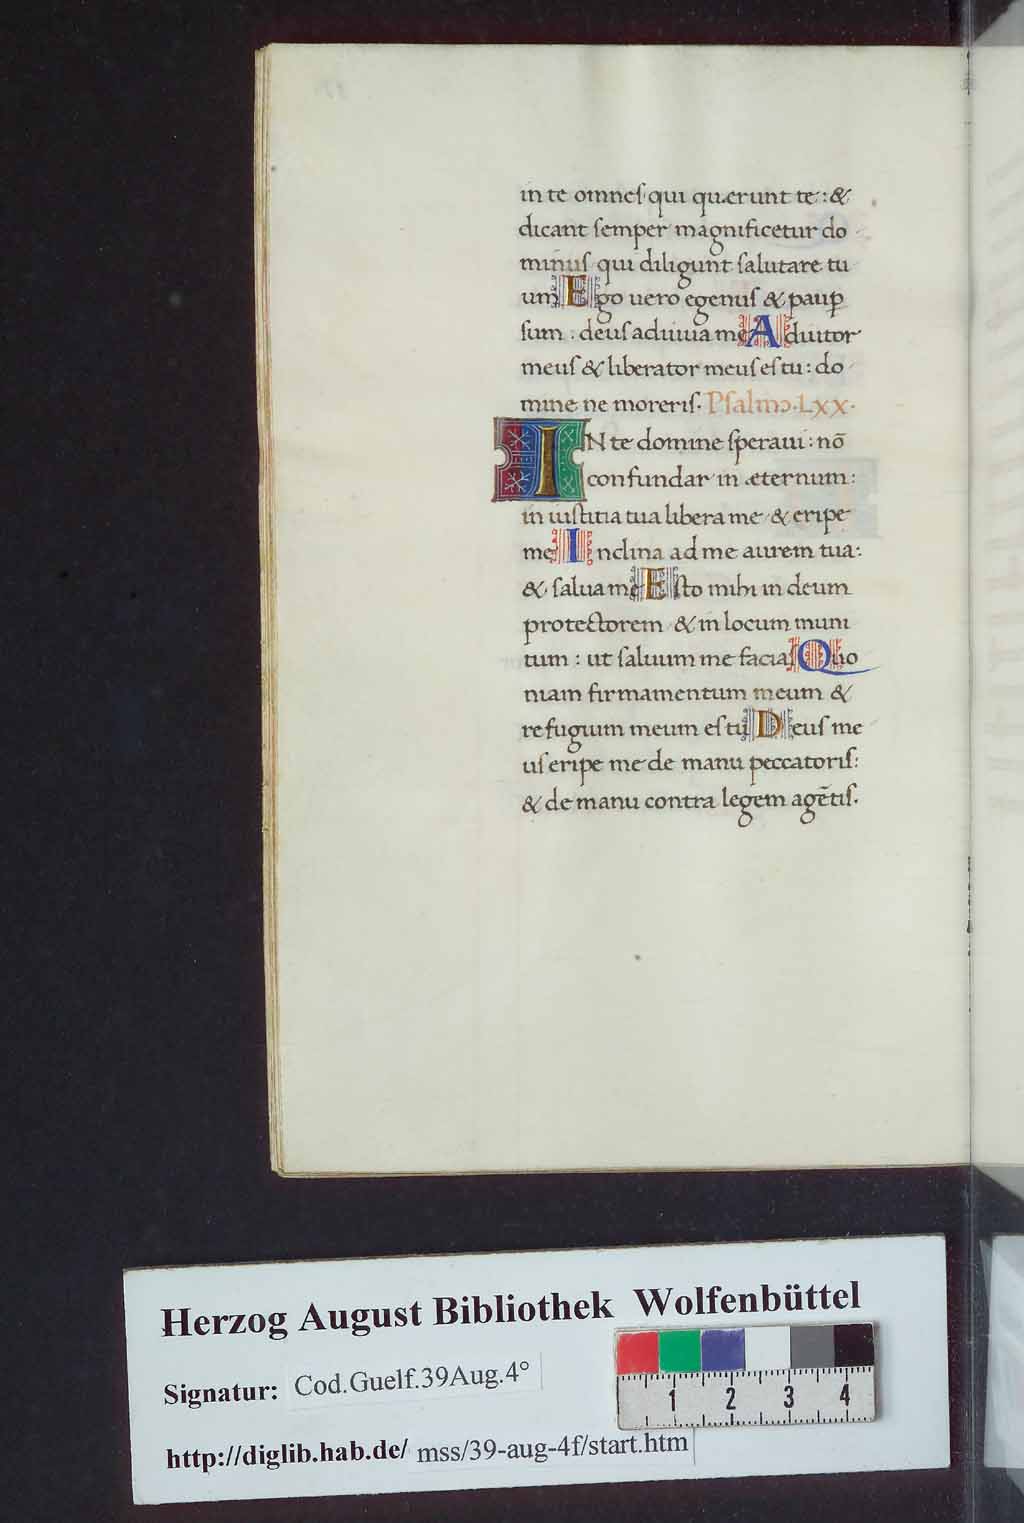 in te omnes qui quærunt te: &
dicant semper magnificetur do
minus qui diligunt salutare tu
um Ego uero egenus & paup̱
sum: deus adiuua me Adiutor
meus & liberator meus es tu: do
mine ne moreris. Psalmꝰ. Lxx.
IN te domine speraui: nō
confundar in æternum:
in iustitia tua libera me & eripe
me Inclina ad me aurem tuā:
& salua me Esto mihi in deum
protectorem & in locum muni
tum: ut saluum me facias Quo
niam firmamentum meum &
refugium meum es tu Deus me
us eripe me de manu peccatoris:
& de manu contra legem agētis.
Herzog August Bibliothek Wolfenbüttel
Signatur: Cod.Guelf.39Aug.4°
1 2 3 4
http://diglib.hab.de/ mss/39-aug-4f/start.htm